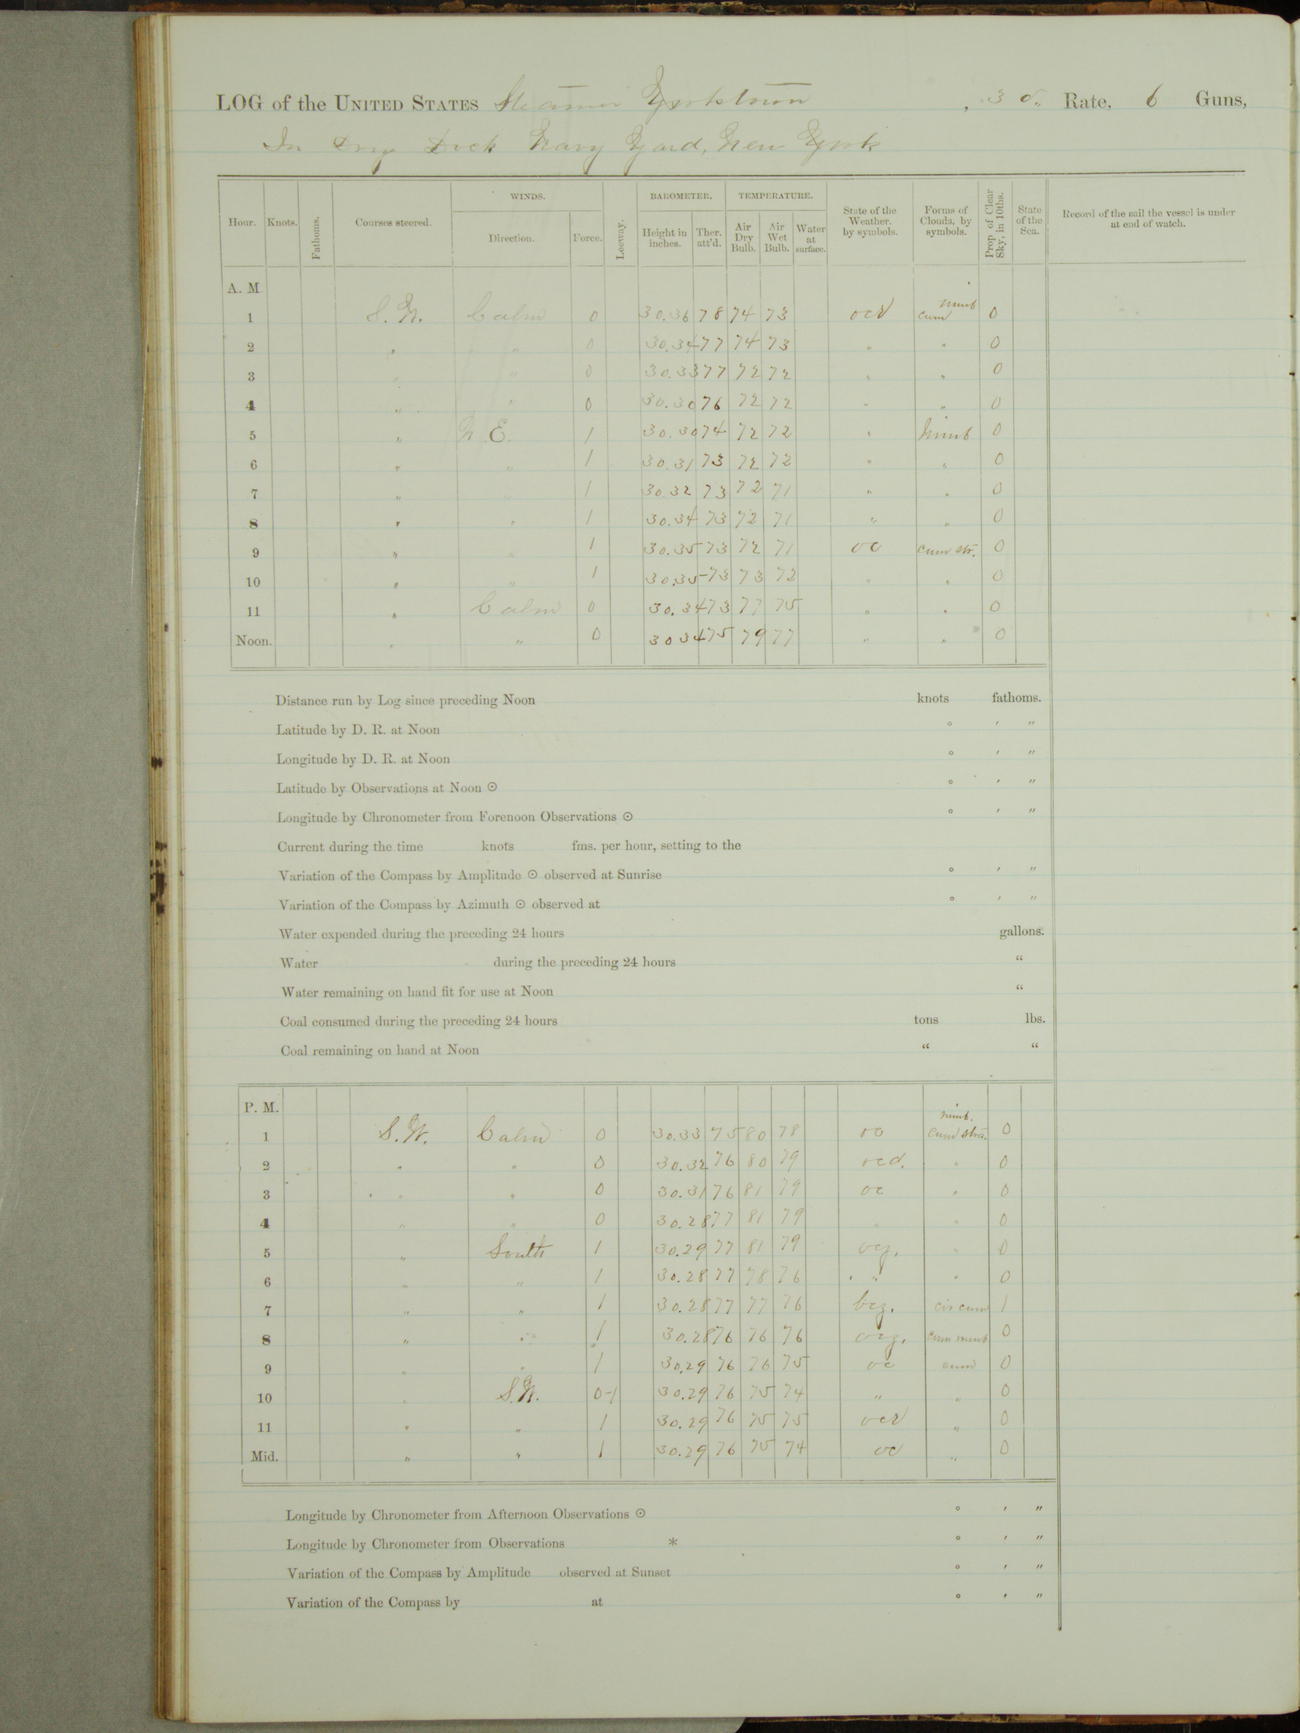 LOG of the UNITED STATES Steamer Yorktown, 3 d. Rate, 6 Guns,
In Dry Dock Navy Yard, New York
Hour. Knots. Fathoms. Courses steered. WINDS. Direction. Force. Leeway. BAROMETER. Height in inches. Ther. att'd. TEMPERATURE. Air Dry Bulb. Air Wet Bulb. Water at surface. State of the Weather, by symbols. Forms of Clouds, by symbols. Prop. of Clear Sky, in 10ths. State of the Sea. Record of the sail the vessel is under at end of watch.
A. M.
1 S.W. Calm 0 30.36 78 74 73 ocd cum nimb 0
2 " " 0 30.34 77 74 73 " " 0
3 " " 0 30.33 77 72 72 " " 0
4 " " 0 30.30 76 72 72 " " 0
5 " N.E. 1 30.30 74 72 72 " Nimb 0
6 " " 1 30.31 73 72 72 " " 0
7 " " 1 30.32 73 72 71 " " 0
8 " " 1 30.34 73 72 71 " " 0
9 " " 1 30.35 73 72 71 oc cum str. 0
10 " " 1 30.35 73 73 72 " " 0
11 " Calm 0 30.34 73 77 75 " " 0
Noon. " " 0 30 34 75 79 77 " " 0
Distance run by Log since preceding Noon knots fathoms.
Latitude by D. R. at Noon ° ′ ″
Longitude by D. R. at Noon ° ′ ″
Latitude by Observations at Noon ⊙ ° ′ ″
Longitude by Chronometer from Forenoon Observations ⊙ ° ′ ″
Current during the time knots fms. per hour, setting to the
Variation of the Compass by Amplitude ⊙ observed at Sunrise ° ′ ″
Variation of the Compass by Azimuth ⊙ observed at ° ′ ″
Water expended during the preceding 24 hours gallons.
Water during the preceding 24 hours "
Water remaining on hand fit for use at Noon "
Coal consumed during the preceding 24 hours tons lbs.
Coal remaining on hand at Noon " "
P. M.
1 S.W. Calm 0 30.33 75 80 78 oc nimb. cum stra. 0
2 " " 0 30.32 76 80 79 ocd. " 0
3 " " 0 30.31 76 81 79 oc " 0
4 " " 0 30.28 77 81 79 " " 0
5 " South 1 30.29 77 81 79 ocg. " 0
6 " " 1 30.28 77 78 76 " " 0
7 " " 1 30.28 77 77 76 bcg. cir cum 1
8 " " 1 30.28 76 76 76 ocg. cum nimb 0
9 " " 1 30.29 76 76 75 oc cum 0
10 " S.W. 0-1 30.29 76 75 74 " " 0
11 " " 1 30.29 76 75 75 ocd " 0
Mid. " " 1 30.29 76 75 74 oc " 0
Longitude by Chronometer from Afternoon Observations ⊙ ° ′ ″
Longitude by Chronometer from Observations * ° ′ ″
Variation of the Compass by Amplitude observed at Sunset ° ′ ″
Variation of the Compass by at ° ′ ″